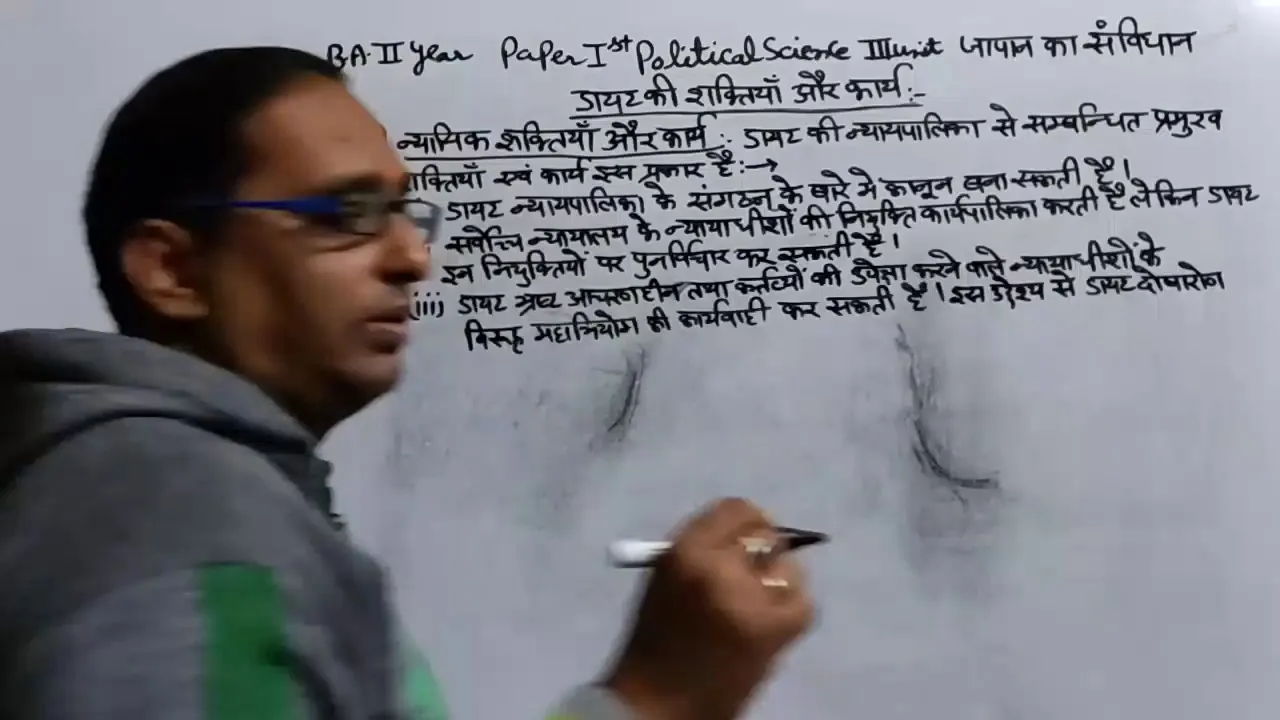 B.A. II Year Paper Ist Political Science III unit जापान का संविधान
डायट की शक्तियाँ और कार्य :-
न्यायिक शक्तियाँ और कार्य : डायट की न्यायपालिका से सम्बन्धित प्रमुख
शक्तियाँ एवं कार्य इस प्रकार है :→
डायट न्यायपालिका के संगठन के बारे में कानून बना सकती है।
सर्वोच्च न्यायालय के न्यायाधीशों की नियुक्ति कार्यपालिका करती है लेकिन डायट
इन नियुक्तियों पर पुनर्विचार कर सकती है।
(iii) डायट भ्रष्ट आचरणहीन तथा कर्तव्यों की उपेक्षा करने वाले न्यायाधीशों के
विरूद्ध महाभियोग की कार्यवाही कर सकती है। इस उद्देश्य से डायट दोषारोप